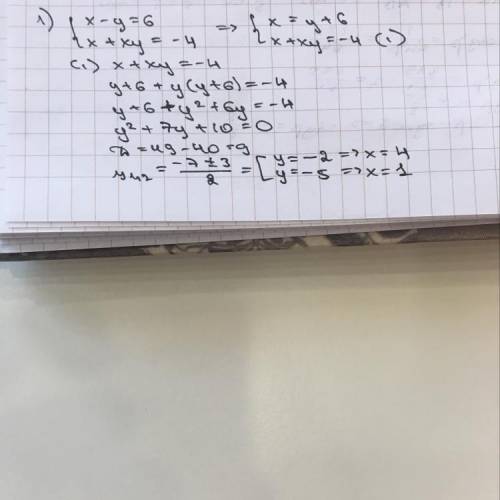 1) { x - y = 6 => { x = y + 6
{ x + xy = -4 { x + xy = -4 (1)
(1) x + xy = -4
y + 6 + y(y + 6) = -4
y + 6 + y² + 6y = -4
y² + 7y + 10 = 0
D = 49 - 40 = 9
y₁,₂ = (-7 ± 3)/2 = [ y = -2 => x = 4
[ y = -5 => x = 1